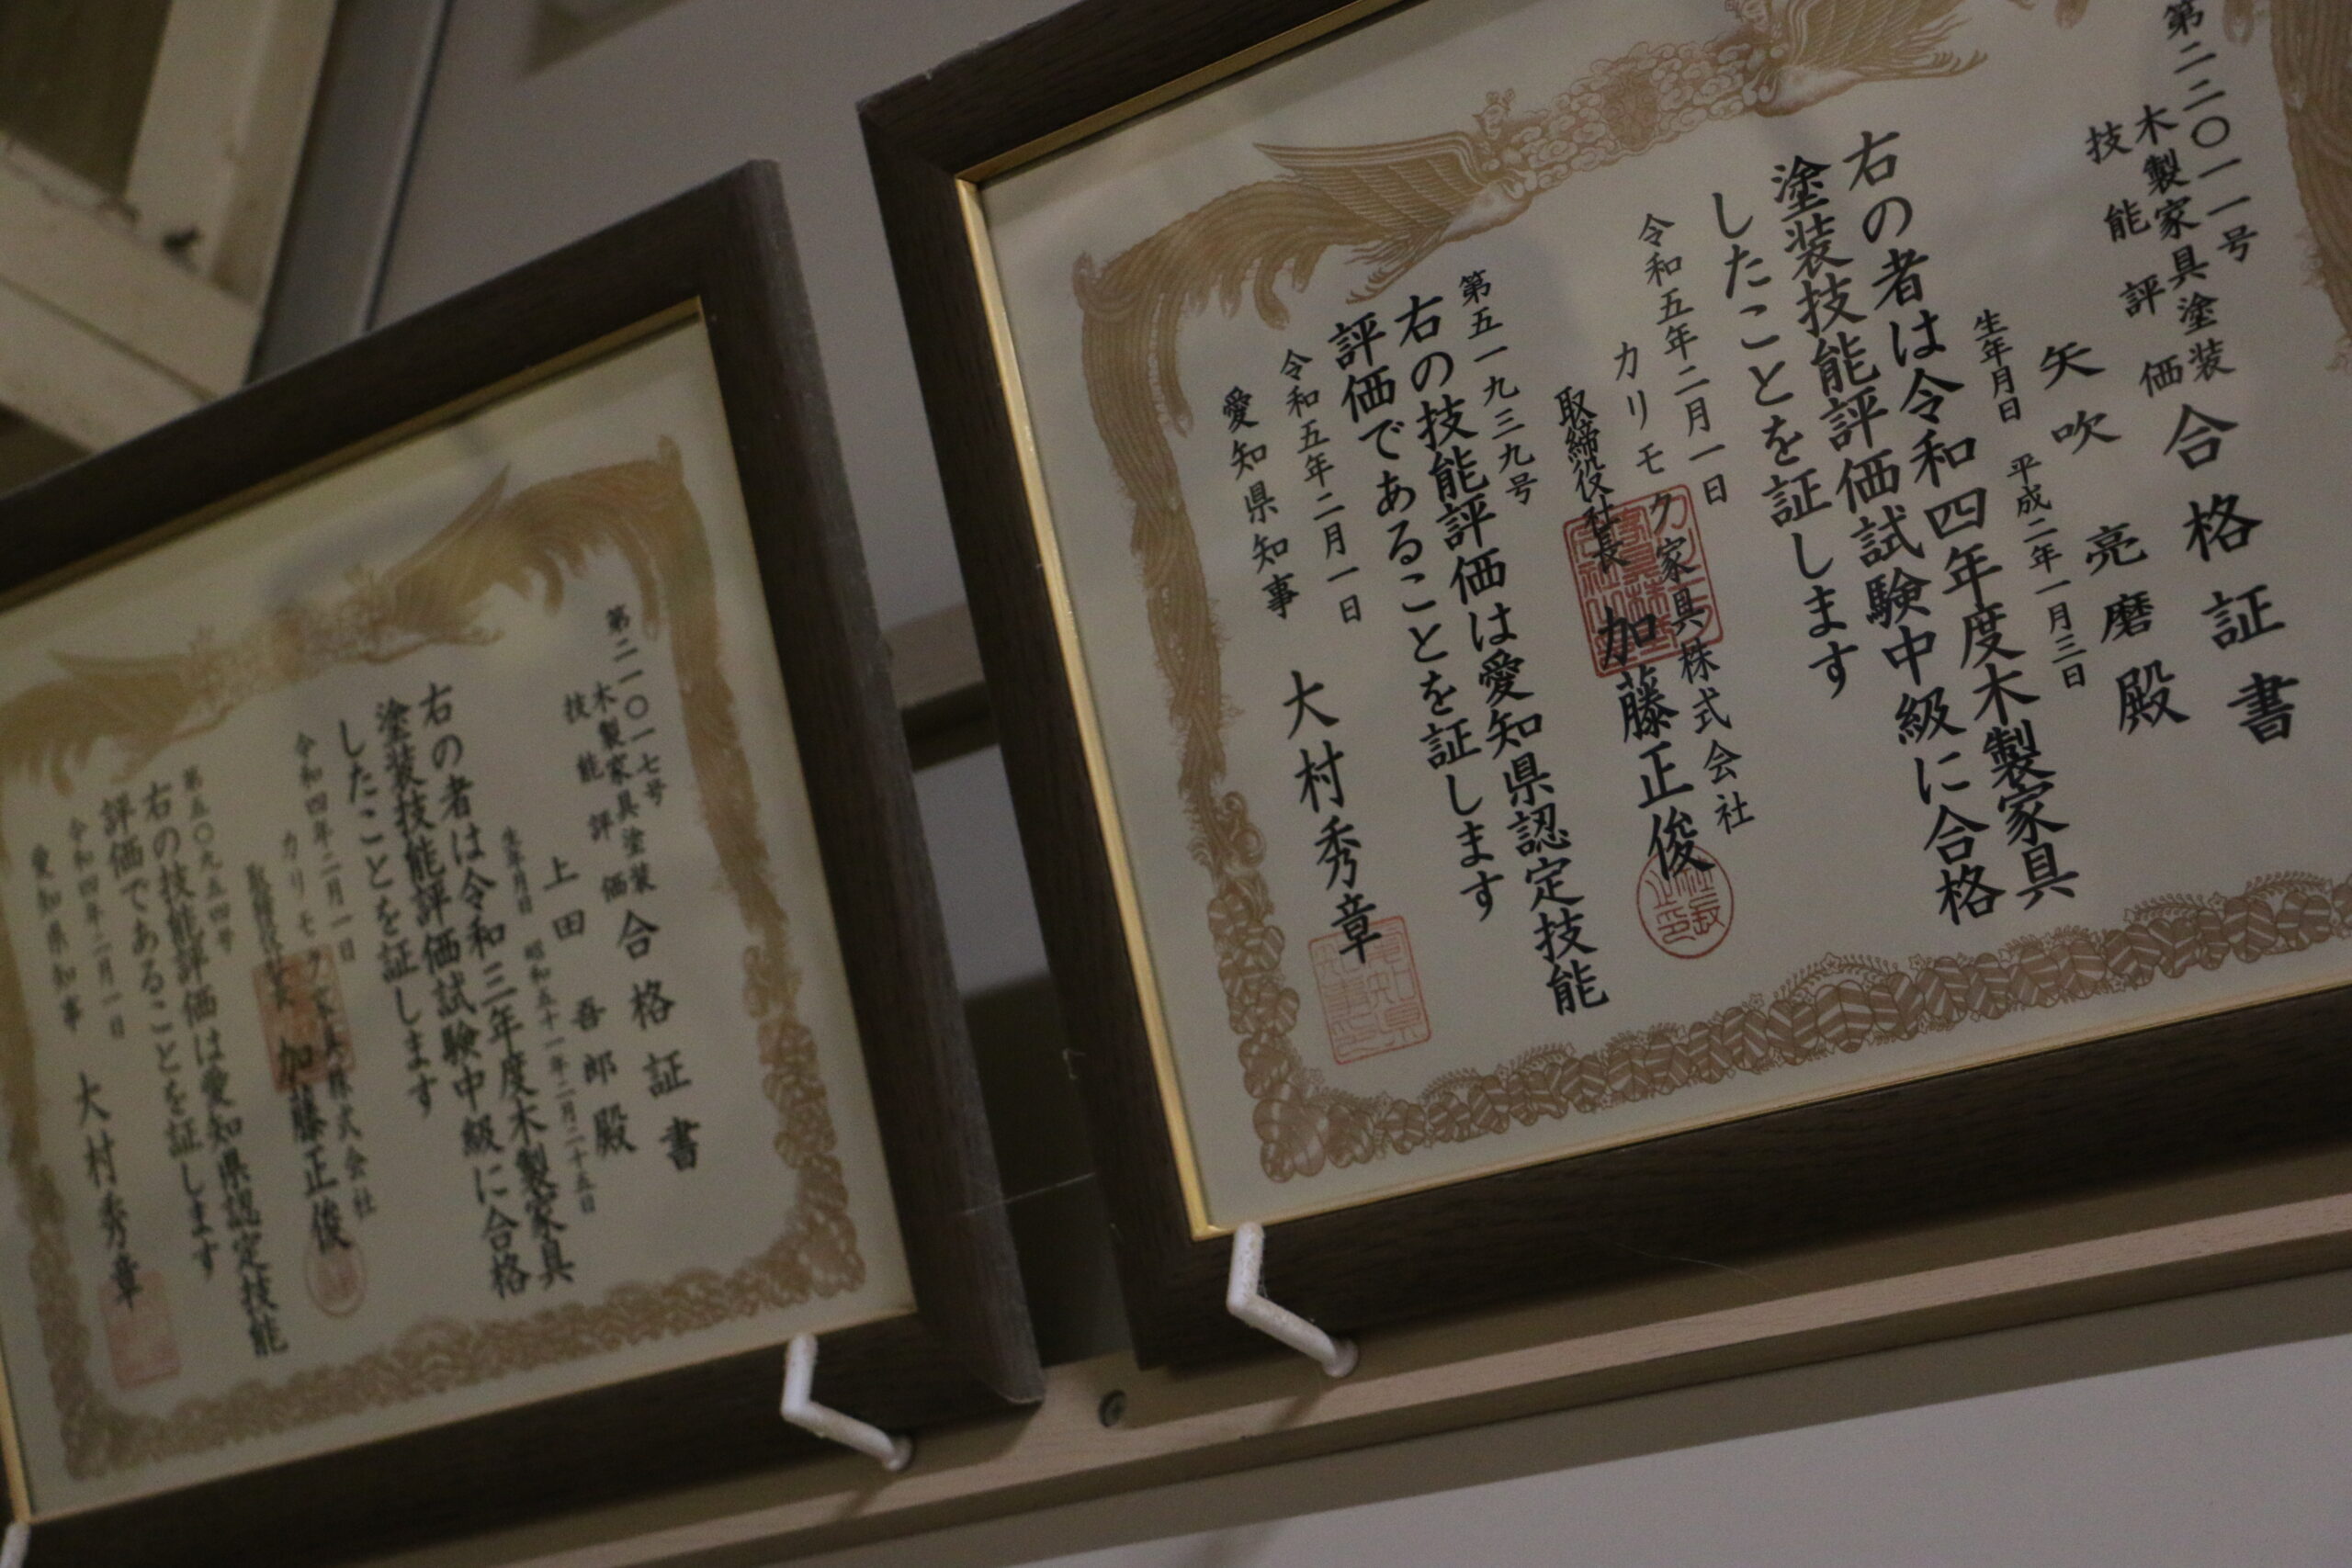 第二二〇一一号
木製家具塗装
技能評価
合格証書
矢吹亮磨殿
生年月日 平成二年一月三日
右の者は令和四年度木製家具
塗装技能評価試験中級に合格
したことを証します
令和五年二月一日
カリモク家具株式会社
取締役社長 加藤正俊
第五一九三九号
右の技能評価は愛知県認定技能
評価であることを証します
令和五年二月一日
愛知県知事 大村秀章
第二一〇一七号
木製家具塗装
技能評価
合格証書
上田吾郎殿
生年月日 昭和五十一年二月二十五日
右の者は令和三年度木製家具
塗装技能評価試験中級に合格
したことを証します
令和四年二月一日
カリモク家具株式会社
取締役社長 加藤正俊
第五〇九五四号
右の技能評価は愛知県認定技能
評価であることを証します
令和四年二月一日
愛知県知事 大村秀章